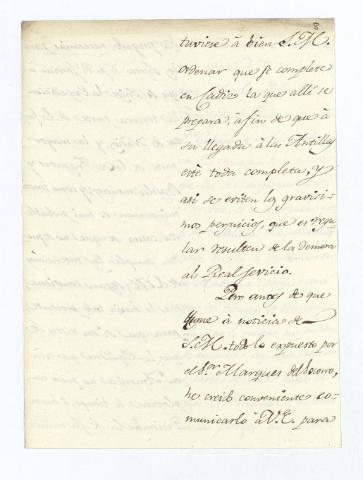 tuviese à bien S. M.
ordenar que se complete
en Cadiz la que alli se
prepara, a fin de que à
su llegada à las Antillas
esté toda completa, y
asi se eviten los gravisi-
mos perjuicios, que es regu-
lar resulten de la demora
al Real servicio.
Pero antes de que
llegue à noticia de
S. M. todo lo expuesto por
el Sor. Marques del Socorro,
he creido conveniente co-
municarlo à V. E. para